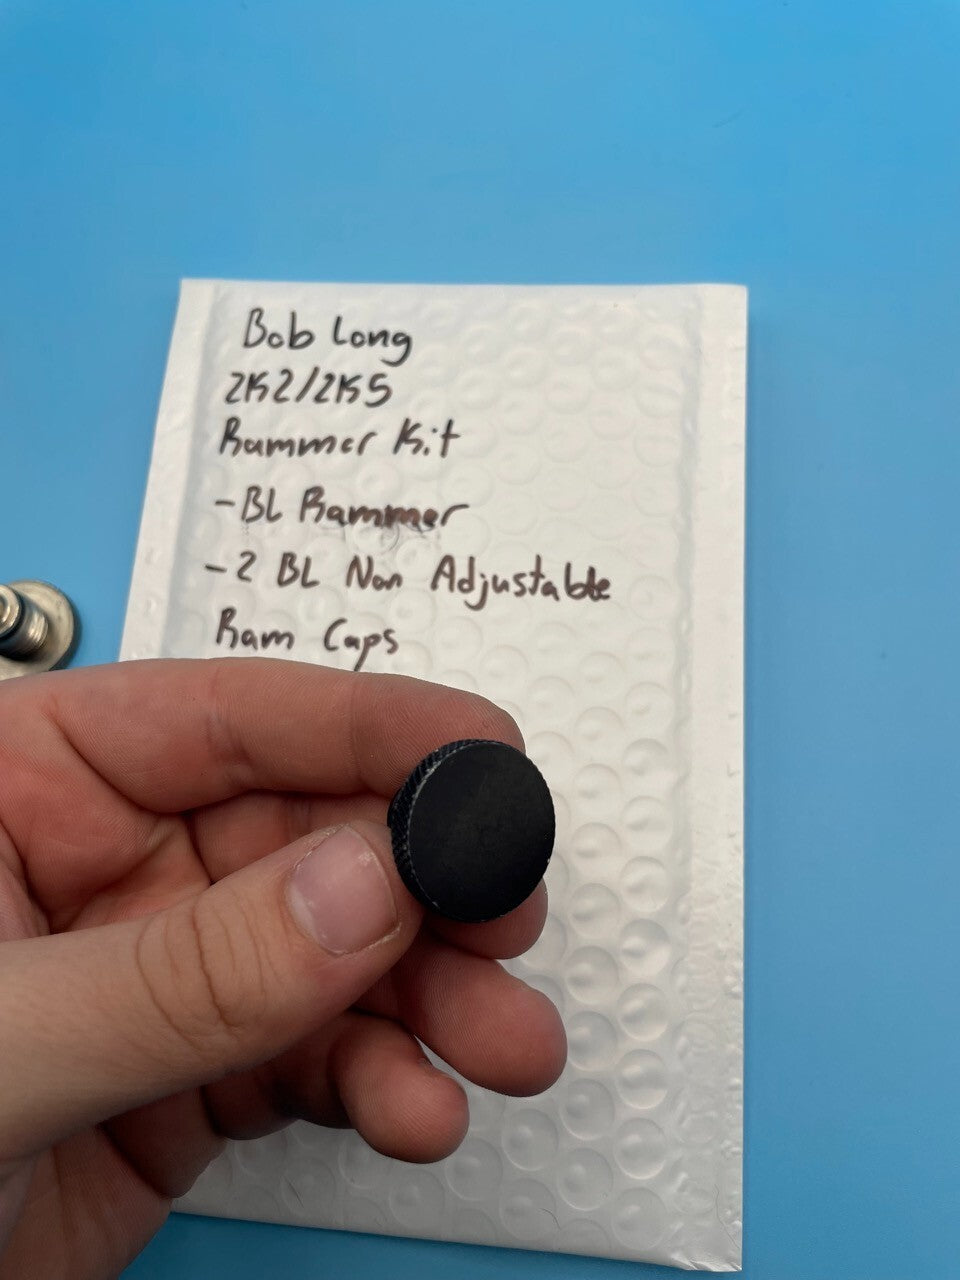 Bob Long
2K2/2K5
Rammer Kit
-BL Rammer
-2 BL Non Adjustable
Ram Caps